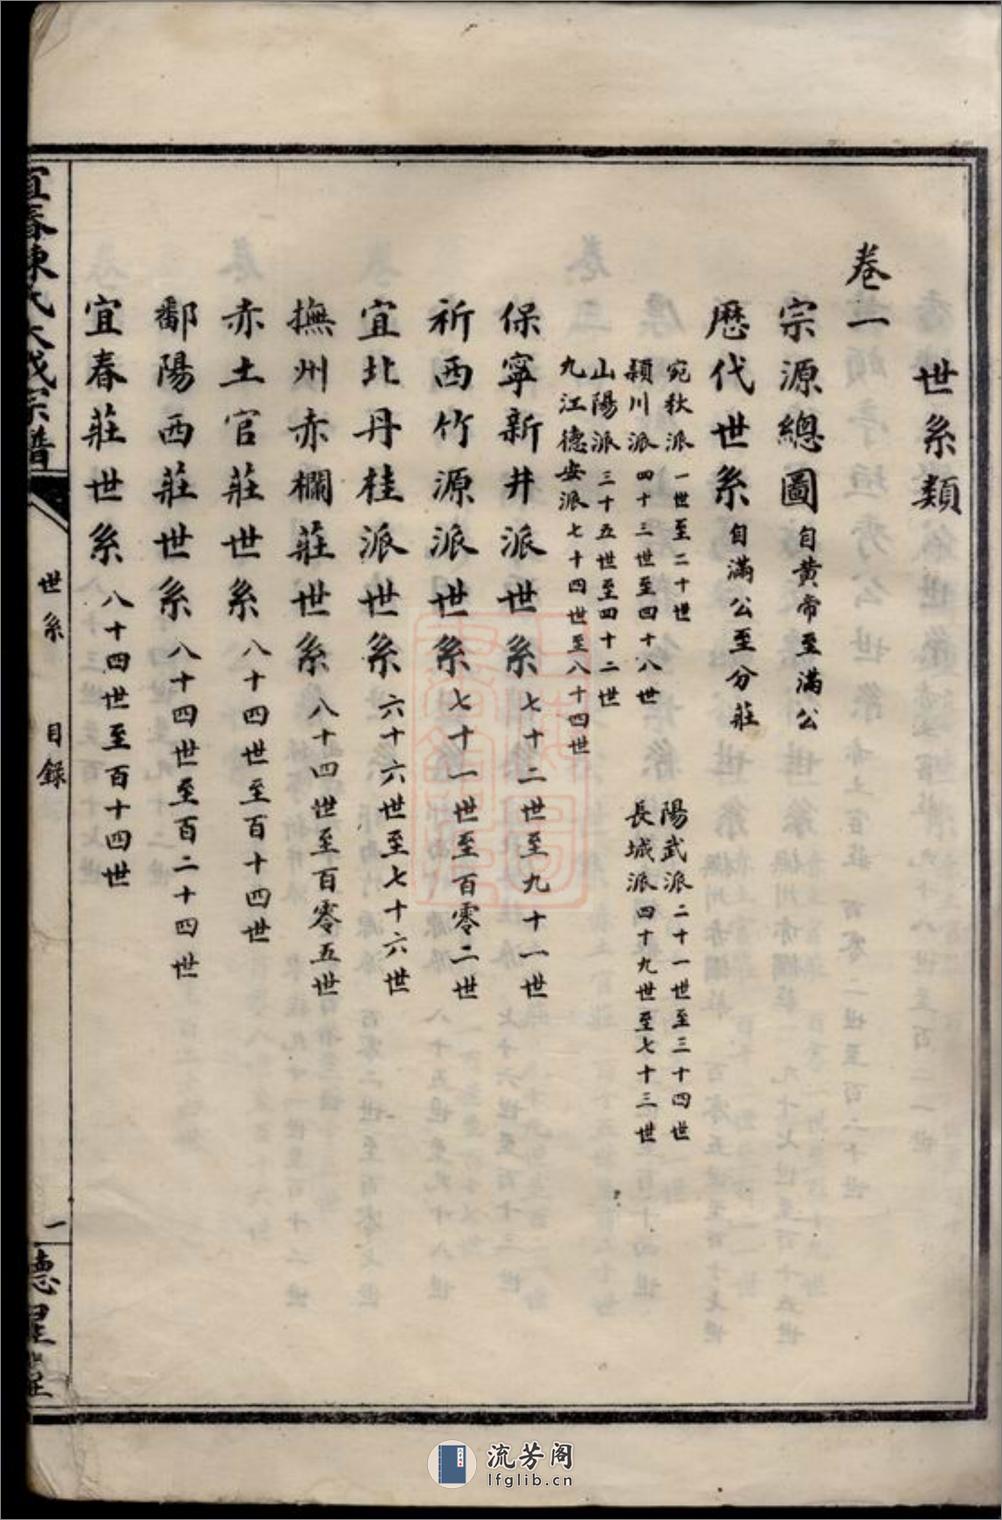 世系類
卷一
宗源總圖 自黃帝至滿公
歷代世系 自滿公至分莊
宛秋派 一世至二十世
陽武派 二十一世至三十四世
潁川派 四十三世至四十八世
長城派 四十九世至七十三世
山陽派 三十五世至四十二世
九江德安派 七十四世至八十四世
保寧新井派世系 七十二世至九十一世
祈西竹源派世系 七十一世至百零二世
宜北丹桂派世系 六十六世至七十六世
撫州赤欄莊世系 八十四世至百零五世
赤土官莊世系 八十四世至百十四世
鄱陽西莊世系 八十四世至百二十四世
宜春莊世系 八十四世至百十四世
宜春陳氏大成宗譜
世系
目錄
一
德星堂
流芳阁
lfglib.cn